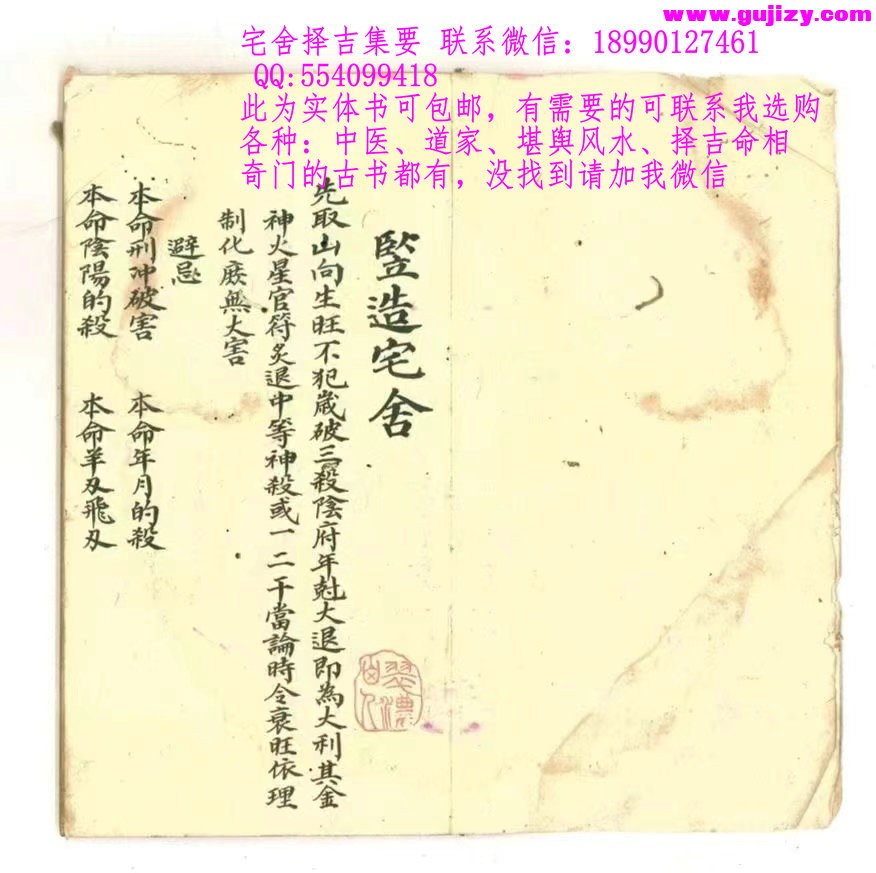 www.gujizy.com
宅舍择吉集要 联系微信：18990127461
QQ:554099418
此为实体书可包邮，有需要的可联系我选购
各种：中医、道家、堪舆风水、择吉命相
奇门的古书都有，没找到请加我微信
竪造宅舍
先取山向生旺不犯歲破三殺陰府年尅大退即為大利其金
神火星官符炙退中等神殺或一二干當論時令衰旺依理
制化庻無大害
避忌
本命刑冲破害 本命年月的殺
本命陰陽的殺 本命羊刃飛刃